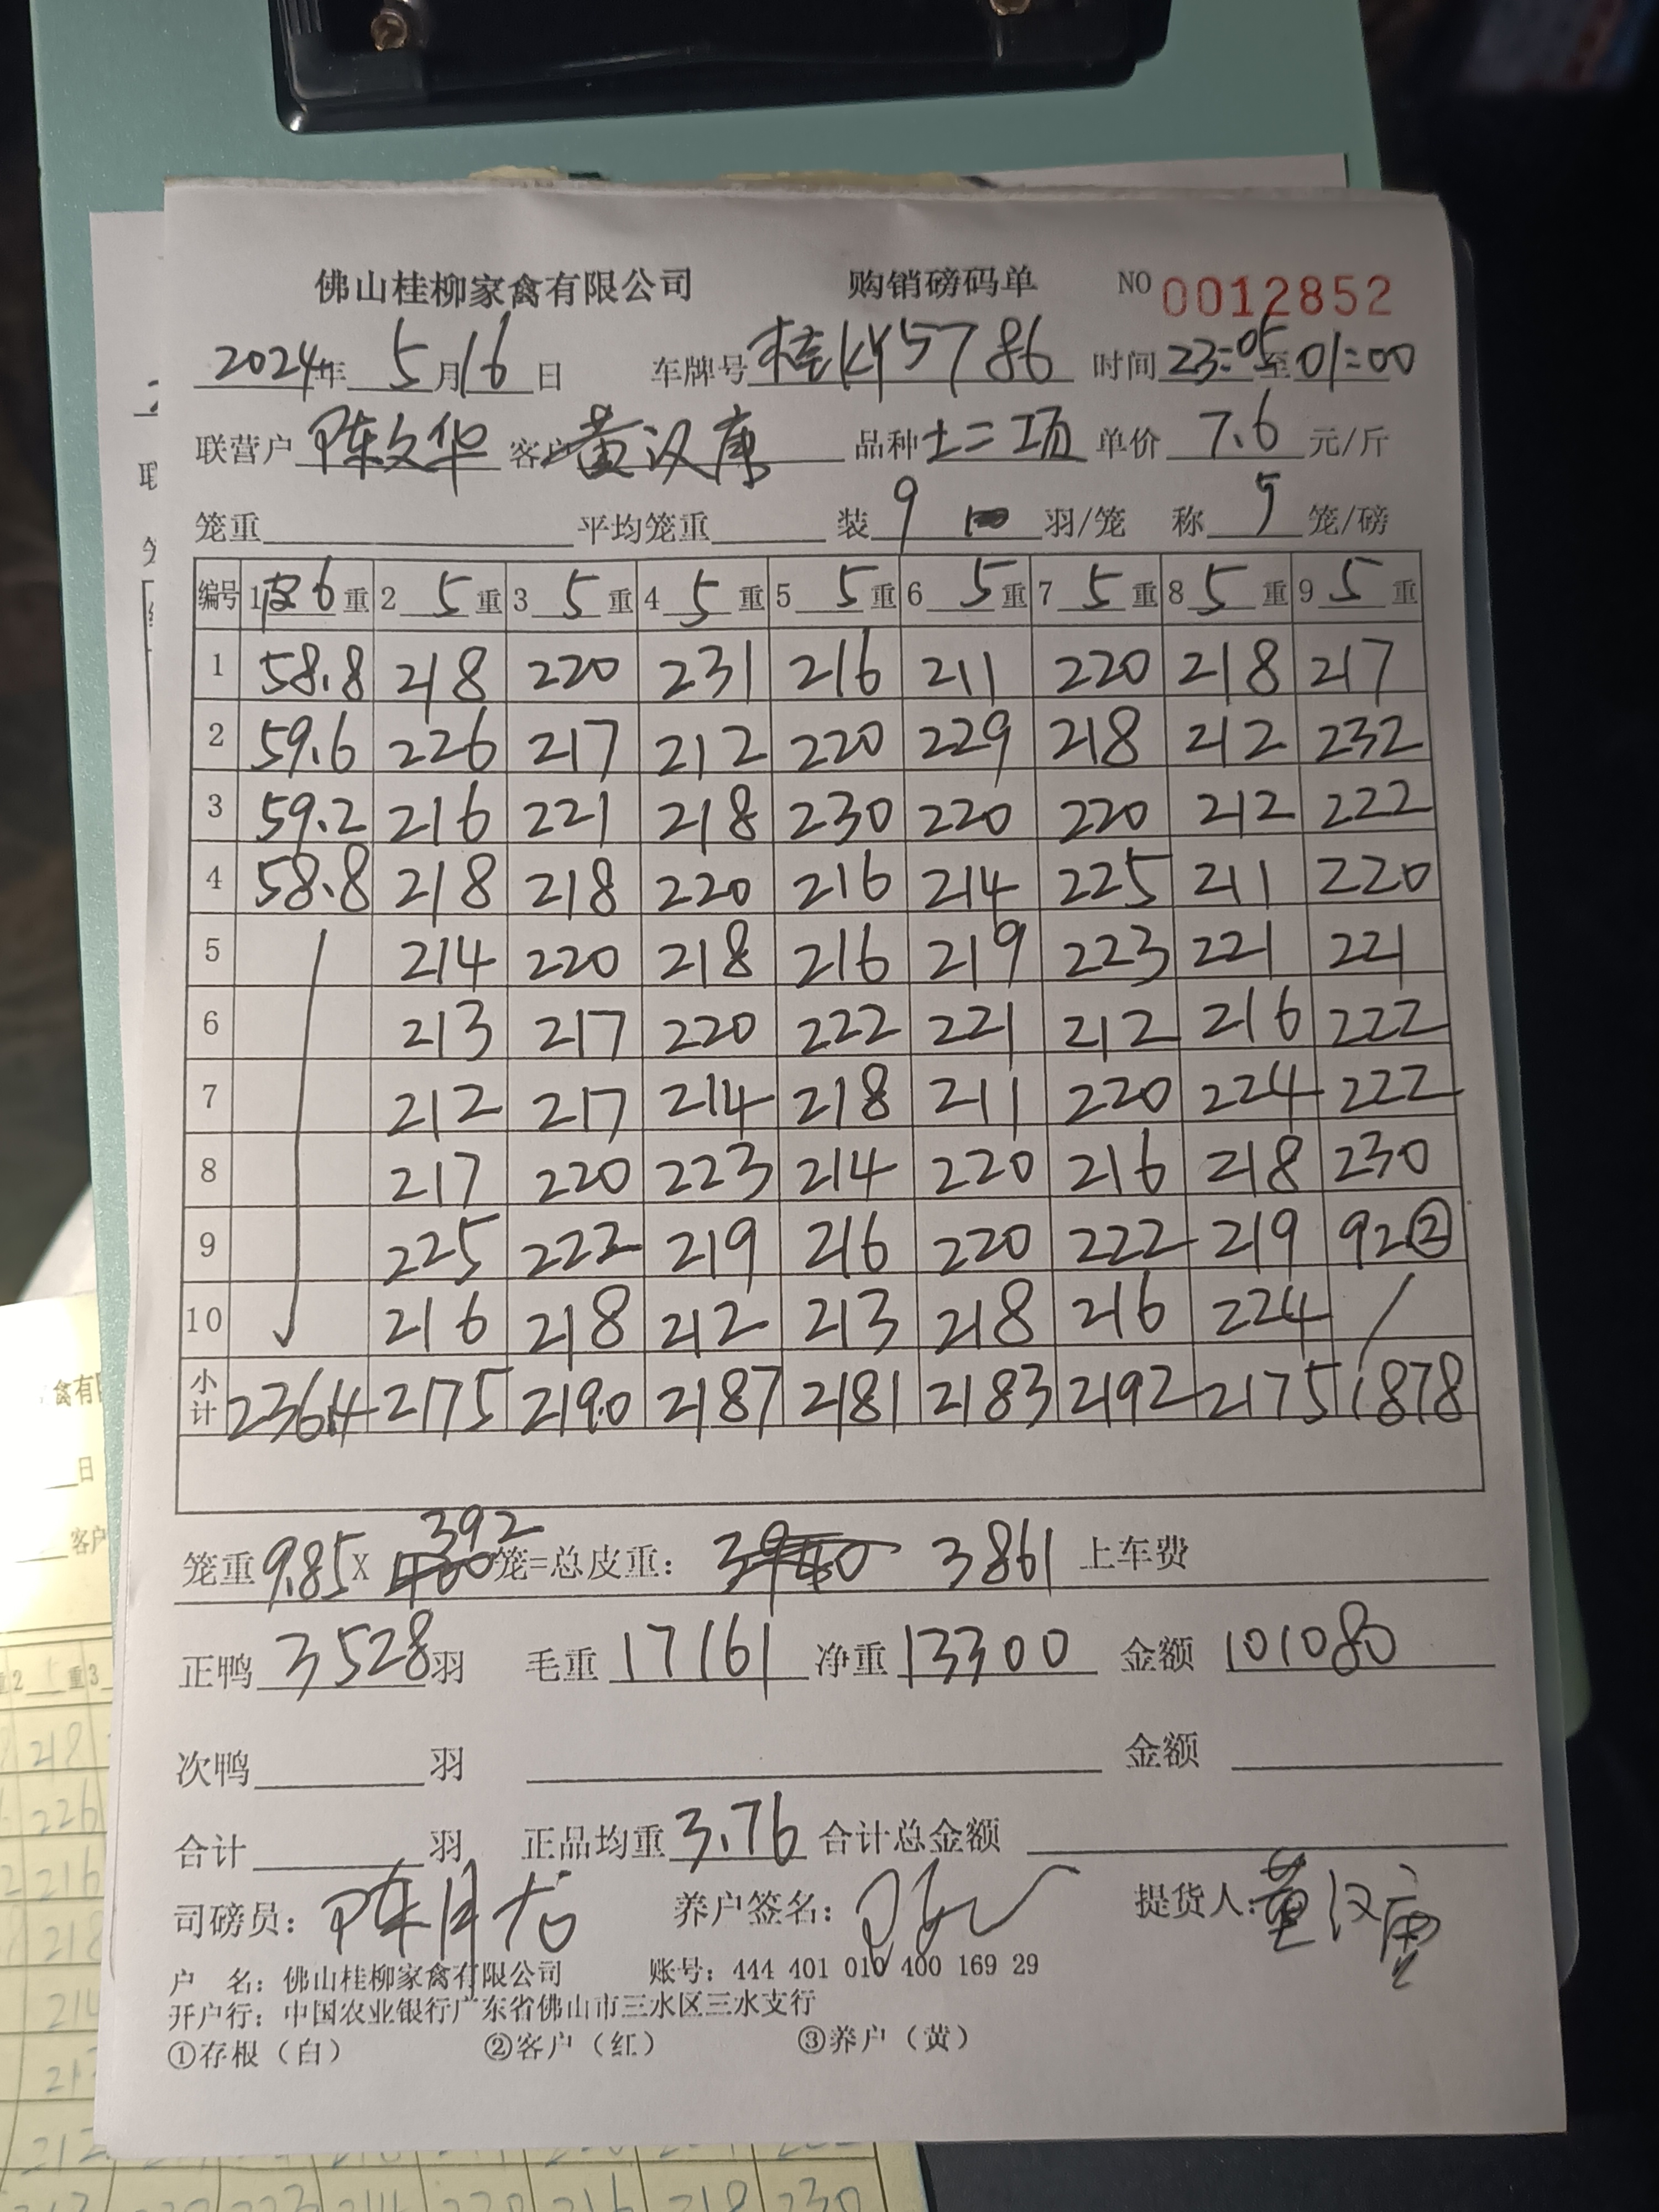 佛山桂柳家禽有限公司 购销磅码单 NO 0012852
2024年 5月16日 车牌号 桂KY5786 时间 23:05至01:00
联营户 陈文华 客户 黄汉康 品种 土二项 单价 7.6 元/斤
笼重 平均笼重 装 9 羽/笼 称 5 笼/磅
编号 1皮6重 2 5重 3 5重 4 5重 5 5重 6 5重 7 5重 8 5重 9 5重
1 58.8 218 220 231 216 211 220 218 217
2 59.6 226 217 212 220 229 218 212 232
3 59.2 216 221 218 230 220 220 212 222
4 58.8 218 218 220 216 214 225 211 220
5 214 220 218 216 219 223 221 221
6 213 217 220 222 221 212 216 222
7 212 217 214 218 211 220 224 222
8 217 220 223 214 220 216 218 230
9 225 222 219 216 220 222 219 92②
10 216 218 212 213 218 216 224 /
小计 236.4 2175 2190 2187 2181 2183 2192 2175 1878
笼重 9.85 X 392 笼=总皮重: 3940 3861 上车费
正鸭 3528 羽 毛重 17161 净重 13300 金额 101080
次鸭 羽 金额
合计 羽 正品均重 3.76 合计总金额
司磅员: 养户签名: 提货人: 黄汉康
户 名: 佛山桂柳家禽有限公司 账号: 444 401 010 400 169 29
开户行: 中国农业银行广东省佛山市三水区三水支行
①存根（白） ②客户（红） ③养户（黄）